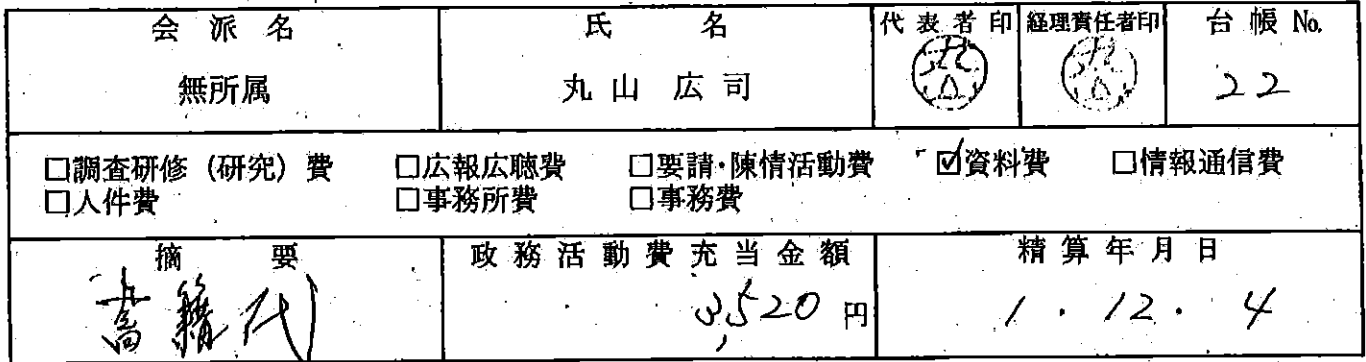 会派名 氏名 代表者印 経理責任者印 台帳No.
無所属 丸山 広司 22
□調査研修（研究）費 □広報広聴費 □要請・陳情活動費 ☑資料費 □情報通信費
□人件費 □事務所費 □事務費
摘要 政務活動費充当金額 精算年月日
書籍代 3,520円 1.12.4